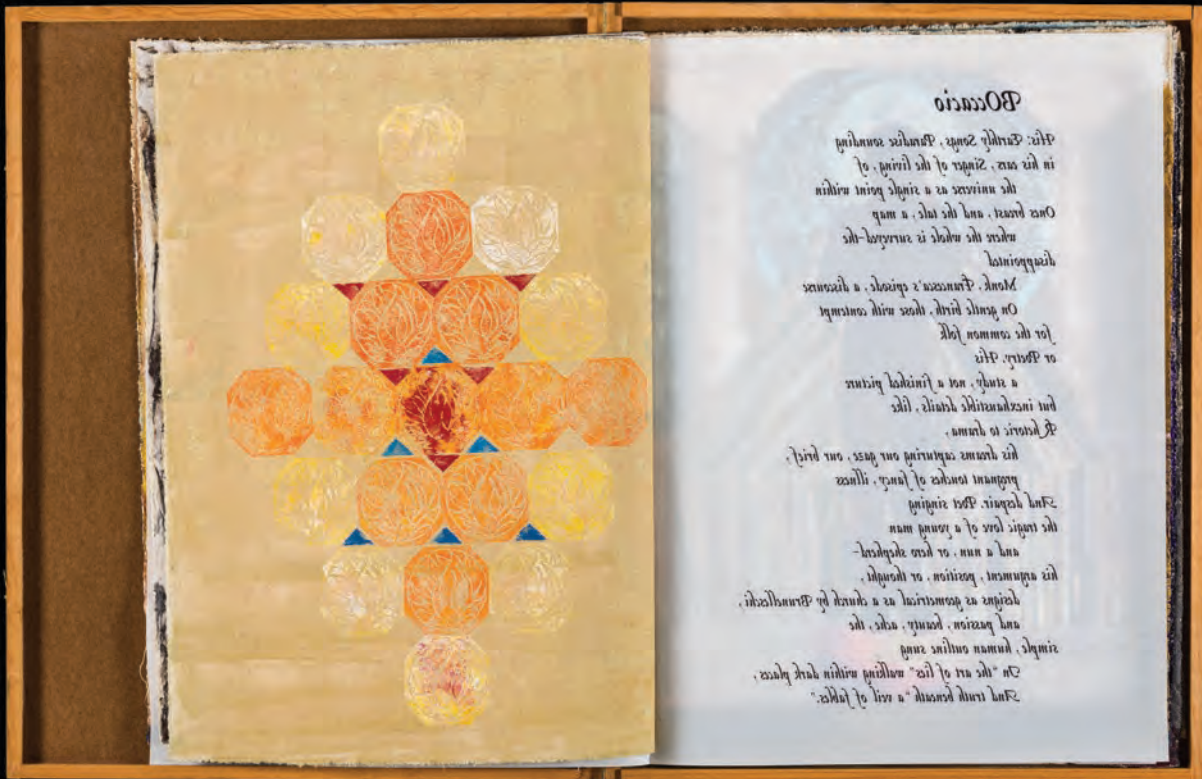 BOccacio
His: Earthly Songs, Paradise sounding
in his ears, Singer of the living, of
the universe as a single point within
Ones breast, and the tale, a map
where the whole is surveyed-the
disappointed
Monk, Francesca's episode, a discourse
On gentle birth, those with contempt
for the common folk
or Poetry. His
a study, not a finished picture
but inexhaustible details, like
Rhetoric to drama,
his dreams capturing our gaze, our brief,
pregnant touches of fancy, illness
And despair. Poet singing
the tragic love of a young man
and a nun, or hero shepherd-
his argument, position, or thought,
designs as geometrical as a church by Brunelleschi,
and passion, beauty, ache, the
simple, human outline sung
In "the art of lies" walking within dark places,
And truth beneath "a veil of fables".